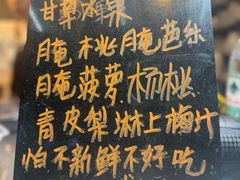 甘草水果
腌桃腌芭乐
腌菠萝杨桃
青皮梨淋上梅汁
怕不新鲜不好吃